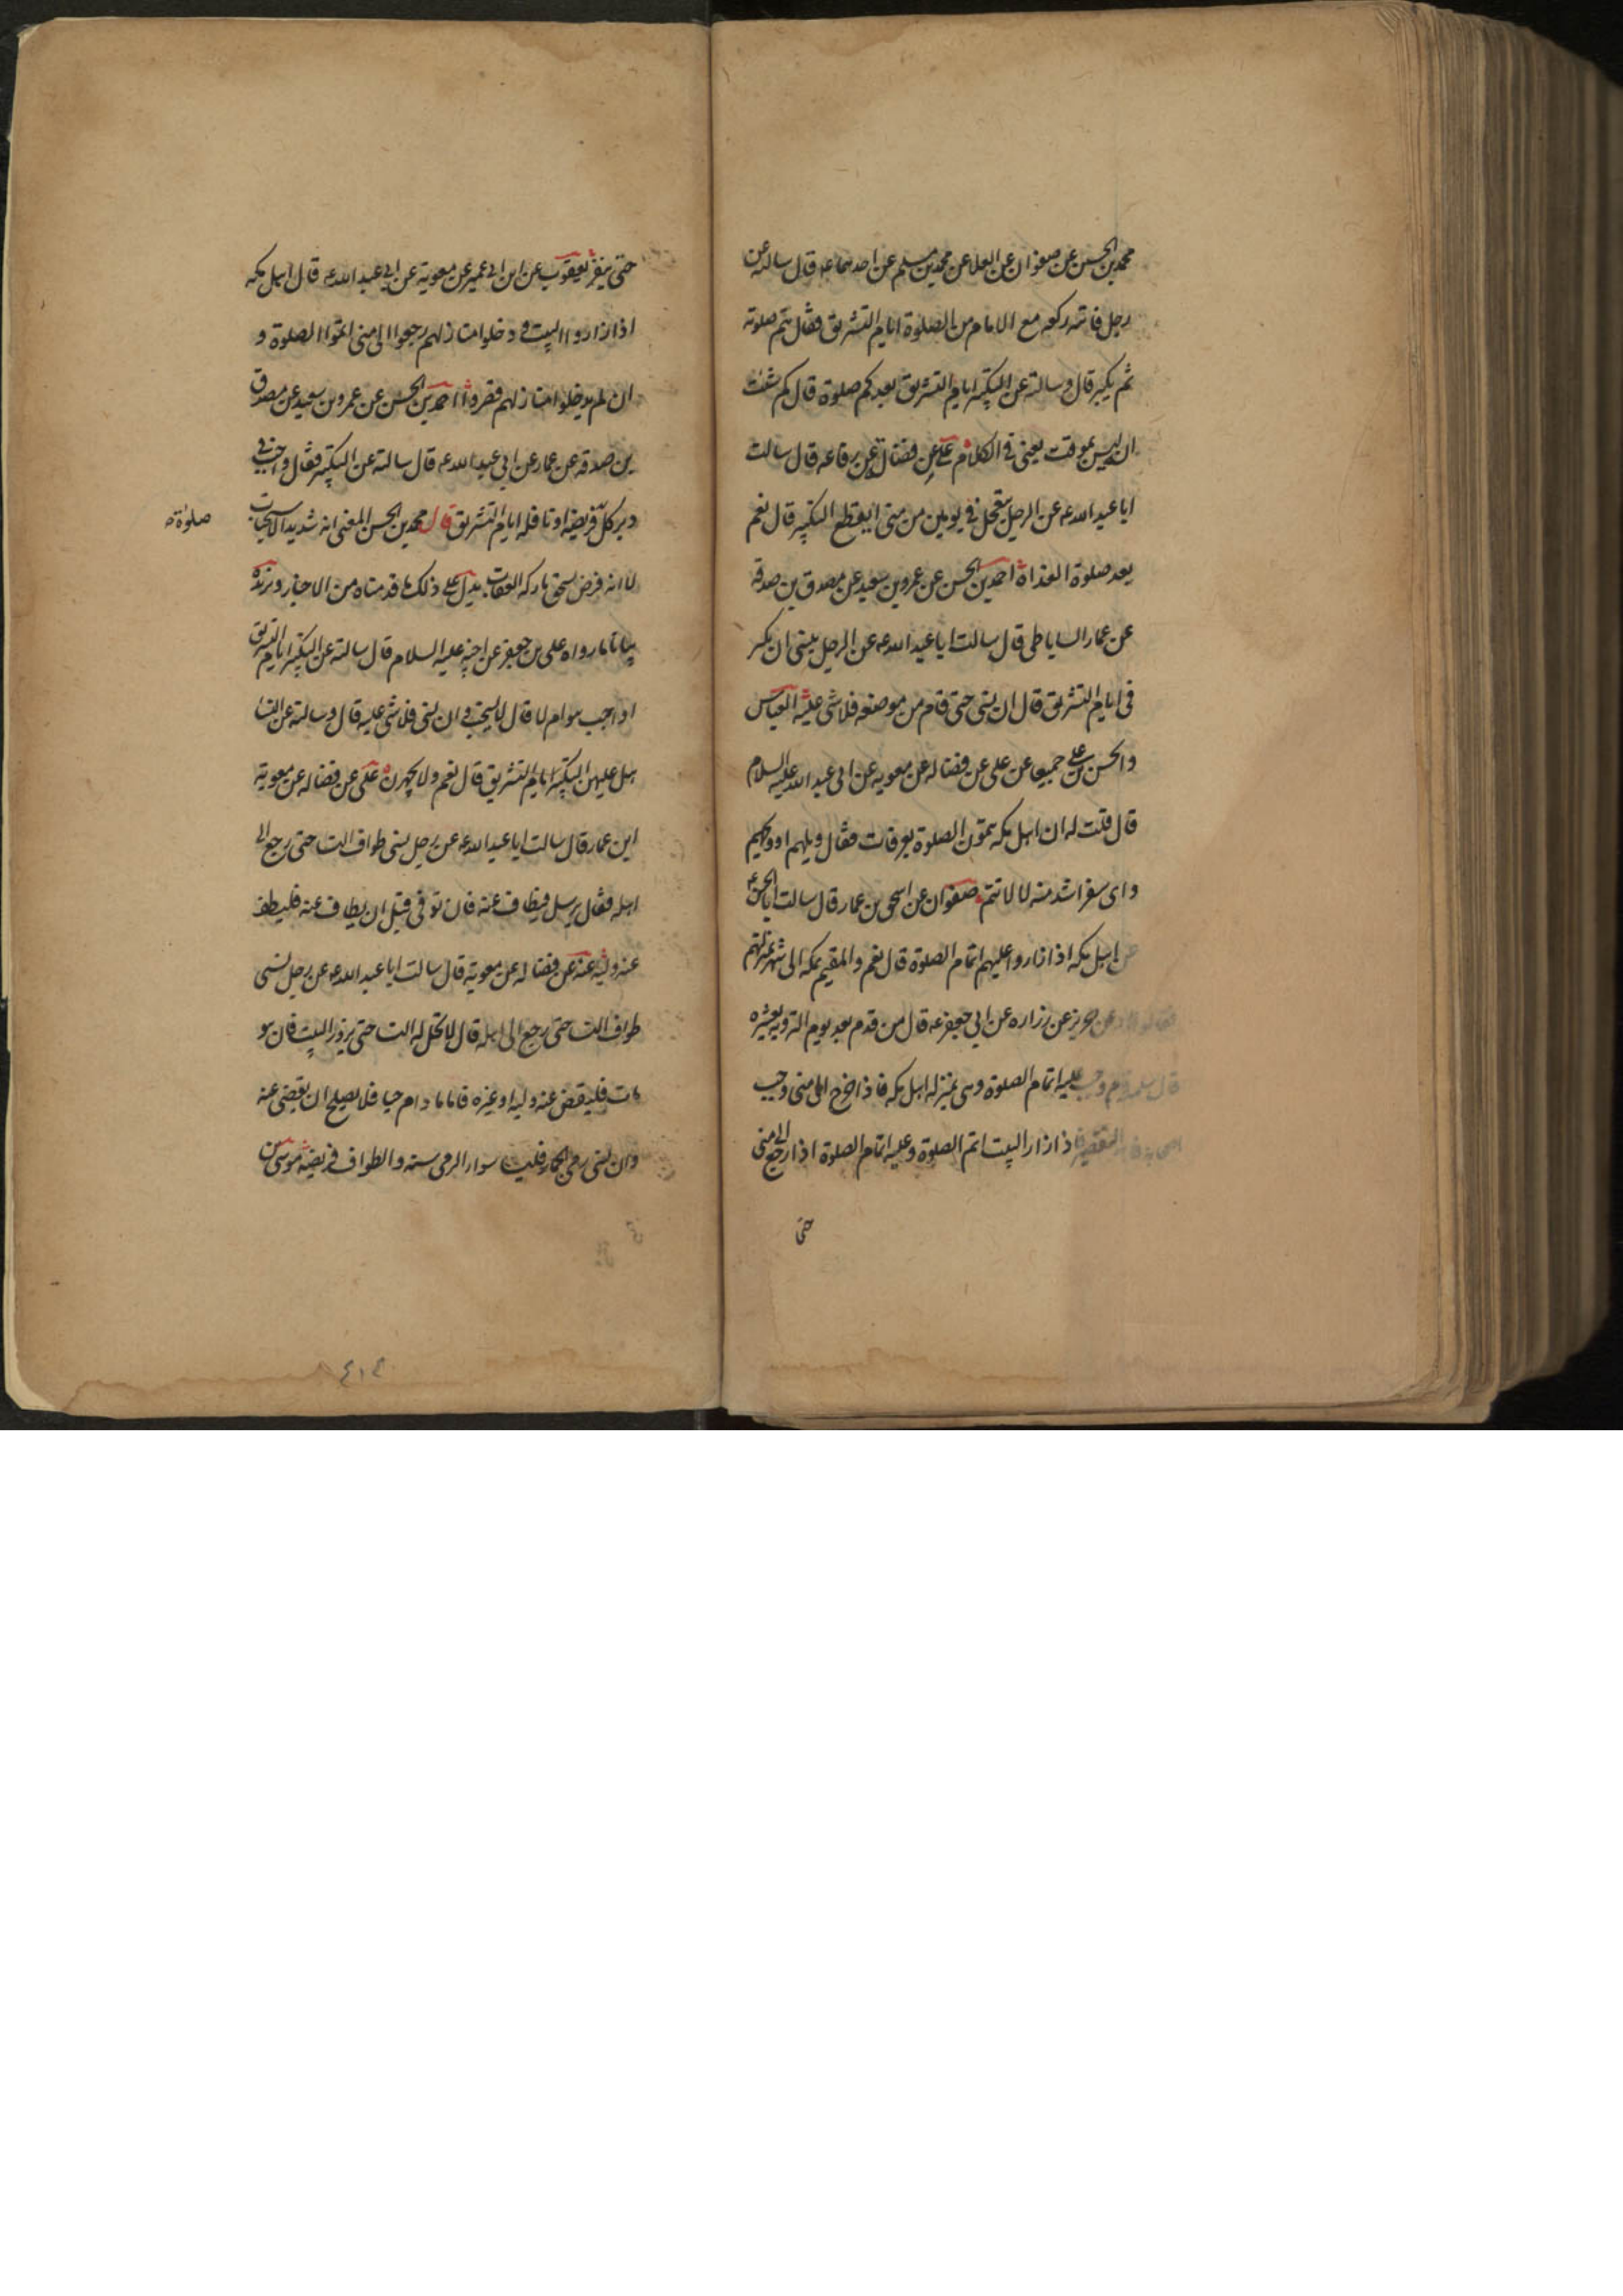 محمد بن الحسين عن صفوان عن العلا عن محمد بن مسلم عن احدهما ع قال سالته عن
رجل فاتته ركعه مع الامام من الصلوة ايام التشريق فقال يتم صلوته
ثم يكبر قال وسالته عن التكبير ايام التشريق بعد كم صلوة قال كم شئت
انه ليس بموقت يعنى فى الكلام على عن فضالة عن رفاعه قال سالت
ابا عبد الله ع عن الرجل يتعجل فى يومين من منى ايقطع التكبير قال نعم
بعد صلوة الغداة احمد بن الحسن عن عمرو بن سعيد عن مصدق بن صدقه
عن عمار الساباطى قال سالت ابا عبد الله ع عن الرجل ينسى ان يكبر
فى ايام التشريق قال ان نسى حتى قام من موضعه فلا شى عليه العباس
والحسن بن على جميعا عن على عن فضاله عن معويه عن ابى عبد الله عليه السلام
قال قلت له ان اهل مكه يتمون الصلوة بعرفات فقال ويلهم او ويحهم
واى سفر اشد منه لا لا تتم صفوان عن اسحق بن عمار قال سالت ابا الحسن ع
عن اهل مكه اذا زاروا عليهم اتمام الصلوة قال نعم والمقيم بمكه الى شهر بمنزلتهم
عن حريز عن زراره عن ابى جعفر ع قال من قدم بعد يوم الترويه بعشره
وجب عليه اتمام الصلوة وهى بمنزله اهل مكه فاذا خرج الى منى وجب
التقصير فاذا زار البيت اتم الصلوة وعليه اتمام الصلوة اذا رجع الى منى
حتى
حتى ينفر يعقوب عن ابن ابى عمير عن معوية عن ابى عبد الله ع قال اهل مكه
اذا زاروا البيت و دخلوا منازلهم رجعوا الى منى اتموا الصلوة و
ان لم يدخلوا منازلهم قصروا احمد بن الحسن عن عمرو بن سعيد عن مصدق
بن صدقه عن عمار عن ابى عبد الله ع قال سالته عن التكبير فقال واجب فى
دبر كل فريضه او نافله ايام التشريق قال محمد بن الحسن المعنى انه شديد الاستحباب
صلوة
لا انه فرض يستحق تاركه العقاب يدل على ذلك ما قدمناه من الاخبار ويزيده
بيانا ما رواه على بن جعفر عن اخيه عليه السلام قال سالته عن التكبير ايام التشريق
اواجب هو ام لا قال يستحب و ان نسى فلا شى عليه قال وسالته عن النسا
هل عليهن التكبير ايام التشريق قال نعم ولا يجهرن على عن فضاله عن معوية
ابن عمار قال سالت ابا عبد الله ع عن رجل نسى طواف النسا حتى رجع الى
اهله فقال يرسل فيطاف عنه فان توفى قبل ان يطاف عنه فليطف
عنه وليه عنه عن فضاله عن معوية قال سالت ابا عبد الله ع عن رجل نسى
طواف النسا حتى رجع الى اهله قال لا تحل له النسا حتى يزور البيت فان هو
مات فليقض عنه وليه او غيره فاما ما دام حيا فلا يصلح ان يقضى عنه
وان نسى رمى الجمار فليسا سوا الرمى سنه والطواف فريضه موسى بن
٤١٤